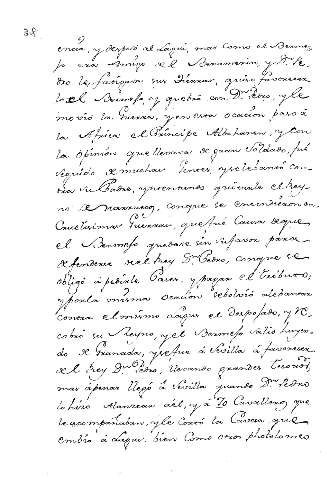 38
encia, y despues al Lagus, mas como el Berme-
jo era Amigo de el Benamarin, y Dn. Pe-
dro le fatigava sus tierras, quiso favorecer
lo el Bermejo, y quebró con Dn. Pedro, y le
movio la Guerra, y en esta ocacion pasó á
la Africa el Principe Abohacen, y con
la opinion que llevava de gran Soldado, fue
seguido de muchas Gentes, y rebelando con-
tra su Padre, intentando quitarle el Rey-
no de Marruecos, conque se encendieron
Cruelisimas Guerras, que fue Causa de que
el Bermejo quedase sin su favor para
defenderse de el Rey Dn. Pedro, conque se
obligó á pedirle Paces, y pagar el tributo;
y por la misma ocacion rebolvio
contra el mismo Lagus el Despojado, y re-
cobró su Reyno, y el Bermejo salio huyen-
do de Granada, y se fue á Sevilla á favorecer
de el Rey Dn. Pedro, llevando grandes tesoros,
mas apenas llegó á Sevilla quando Dn. Pedro
lo hizo Alancear á el, y á 70 Cavalleros, que
le acompañaban, y le cortó la Caveza que
embió á Lagus. bien como otro Ptolomeo